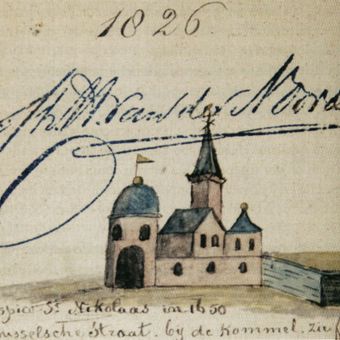 1826.
Ph. V. van der Noord
spice St Nikolaas in 1650
usselsche Straat. by de Kommel. zie